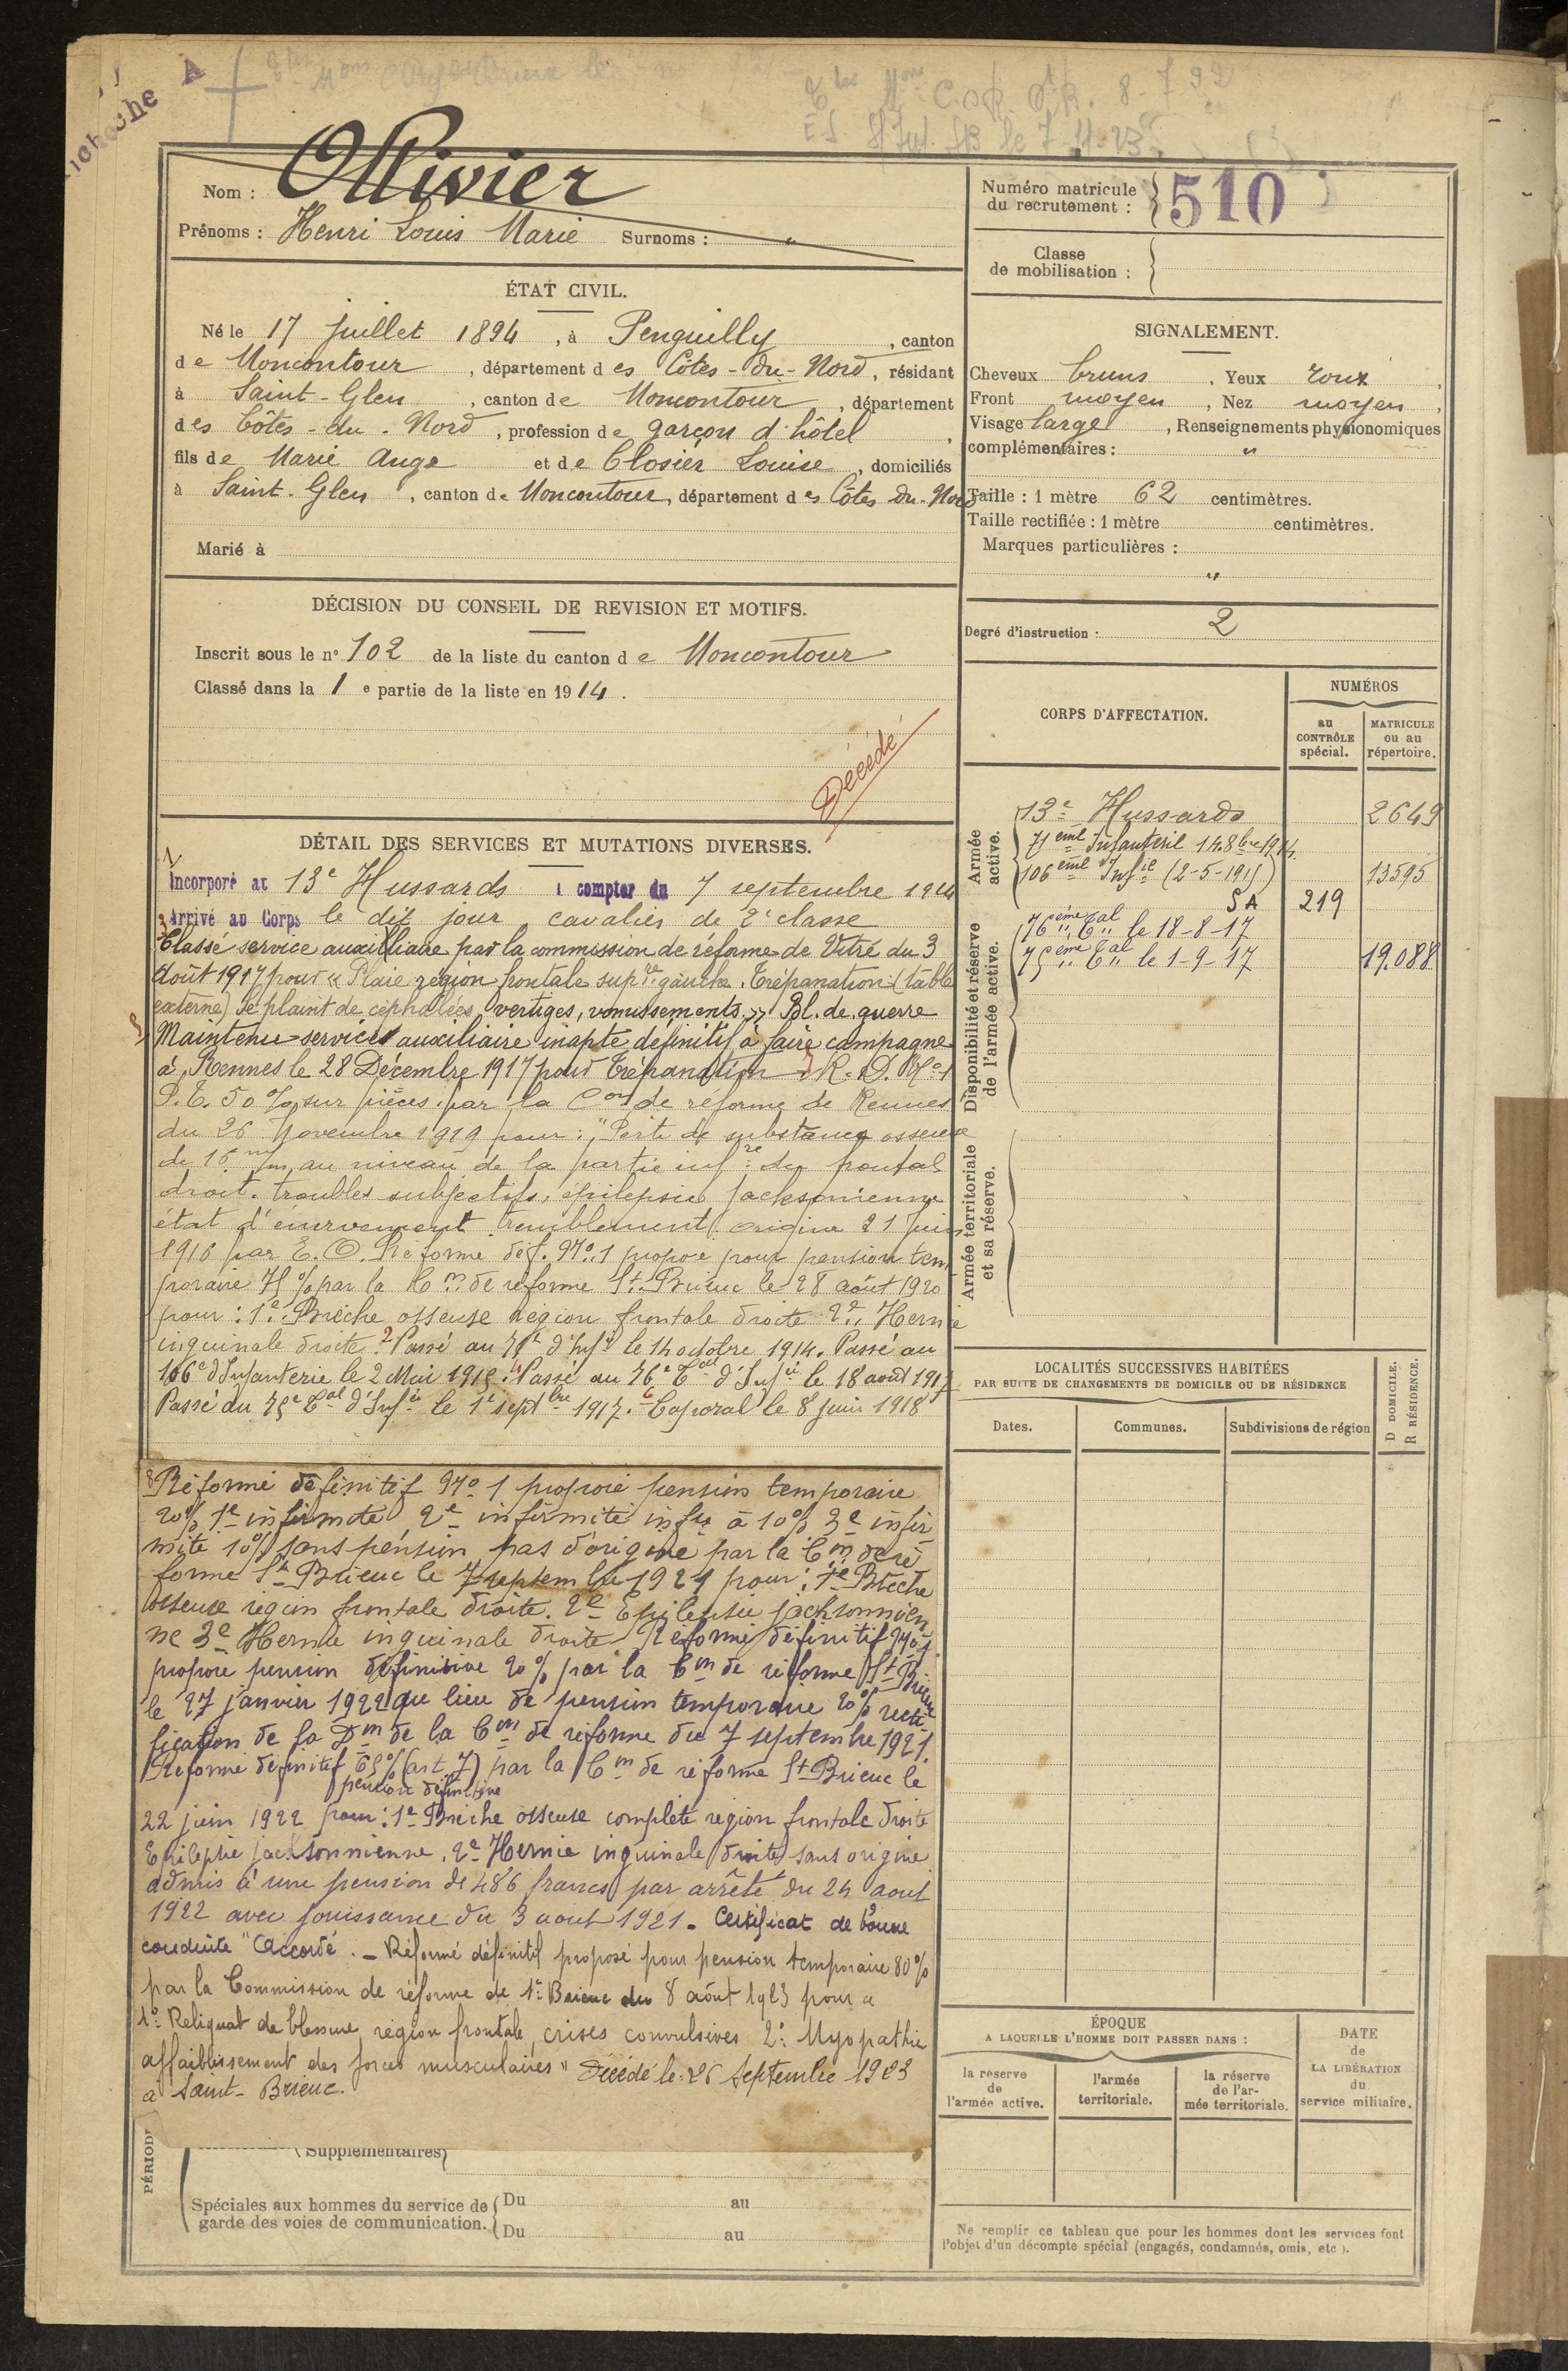 Nom : Ollivier
Prénoms : Henri Louis Marie Surnoms : "
Numéro matricule
du recrutement : 510
Classe
de mobilisation :
ÉTAT CIVIL.
Né le 17 juillet 1894, à Penguilly, canton
de Moncontour, département des Côtes-du-Nord, résidant
à Saint-Glen, canton de Moncontour, département
des Côtes-du-Nord, profession de garçon d'hôtel,
fils de Marie Ange et de Closier Louise, domiciliés
à Saint-Glen, canton de Moncontour, département des Côtes du-Nord
Marié à
SIGNALEMENT.
Cheveux bruns, Yeux roux,
Front moyen, Nez moyen,
Visage large, Renseignements physionomiques
complémentaires : "
Taille : 1 mètre 62 centimètres.
Taille rectifiée : 1 mètre centimètres.
Marques particulières :
"
Degré d'instruction : 2
DÉCISION DU CONSEIL DE REVISION ET MOTIFS.
Inscrit sous le n° 102 de la liste du canton de Moncontour
Classé dans la 1e partie de la liste en 1914.
Décédé
DÉTAIL DES SERVICES ET MUTATIONS DIVERSES.
Incorporé au 13e Hussards à compter du 7 septembre 1914
Arrivé au Corps le dit jour, cavalier de 2e classe
Classé service auxilliaire par la commission de réforme de Vitré du 3
Août 1917 pour « Plaie région frontale supre gauche. Trépanation (table
externe) se plaint de céphalées, vertiges, vomissements » Bl. de guerre
Maintenu service auxiliaire inapte définitif à faire campagne
à Rennes le 28 Décembre 1917 pour Trépanation R. D. No 1
P. T. 50 % sur pièces par la Con de réforme de Rennes
du 26 Novembre 1919 pour : "Perte de substance osseuse
de 15 m/m au niveau de la partie infre du frontal
droit. troubles subjectifs, épilepsie jacksonienne
état d'énervement tremblement origine 21 Juin
1916 par E. O. Réformé déf. No 1 proposé pour pension tem
poraire 75 % par la Con de réforme St Brieuc le 28 août 1920
pour : 1e Brèche osseuse région frontale droite 2e Hernie
inguinale droite. 2 Passé au 71e d'Infie le 14 octobre 1914. Passé au
106e d'Infanterie le 2 Mai 1915. 4 Passé au 76e Tal d'Infie le 18 août 1917
Passé au 75e Tal d'Infie le 1er septbre 1917. 6 Caporal le 8 juin 1918
8 Réformé définitif No 1 proposé pension temporaire
20% 1e infirmité 2e infirmité infre à 10% 3e infir
mité 10% sans pension pas d'origine par la Con de ré
forme St Brieuc le 7 septembre 1921 pour : 1e Brèche
osseuse région frontale droite. 2e Epilepsie jacksonnien
ne 3e Hernie inguinale droite. Réformé définitif No 1
proposé pension définitive 20% par la Con de réforme St Brieuc
le 27 janvier 1922 au lieu de pension temporaire 20% recti
fication de la Don de la Con de réforme du 7 septembre 1921.
Réformé définitif 65% (art 7) par la Con de réforme St Brieuc le
pension définitive
22 juin 1922 pour : 1e Brèche osseuse complète région frontale droite
Epilepsie jacksonnienne. 2e Hernie inguinale droite sans origine
admis à une pension de 486 francs par arrêté du 24 aout
1922 avec jouissance du 3 aout 1921. Certificat de bonne
conduite "Accordé. – Réformé définitif proposé pour pension temporaire 80%
par la Commission de réforme de St Brieuc du 8 août 1923 pour "
1° Reliquat de blessure région frontale, crises convulsives 2° Myopathie
affaiblissement des forces musculaires" Décédé le 26 Septembre 1923
à Saint-Brieuc.
PÉRIOD
Supplémentaires
Spéciales aux hommes du service de
garde des voies de communication.
Du au
Du au
CORPS D'AFFECTATION.
NUMÉROS
au
CONTRÔLE
spécial.
MATRICULE
ou au
répertoire.
Armée
active.
13e Hussards 2649
71eme Infanterie 14.8bre 1914.
106eme Infie (2-5-1915) 13595
SA 219
Disponibilité et réserve
de l'armée active.
76ème Tal le 18-8-17
75ème Tal le 1-9-17 19.088
Armée territoriale
et sa réserve.
LOCALITÉS SUCCESSIVES HABITÉES
PAR SUITE DE CHANGEMENTS DE DOMICILE OU DE RÉSIDENCE
Dates.
Communes.
Subdivisions de région
D DOMICILE.
R RÉSIDENCE.
ÉPOQUE
A LAQUELLE L'HOMME DOIT PASSER DANS :
la réserve
de
l'armée active.
l'armée
territoriale.
la réserve
de l'ar-
mée territoriale.
DATE
de
LA LIBÉRATION
du
service militaire.
Ne remplir ce tableau que pour les hommes dont les services font
l'objet d'un décompte spécial (engagés, condamnés, omis, etc.).